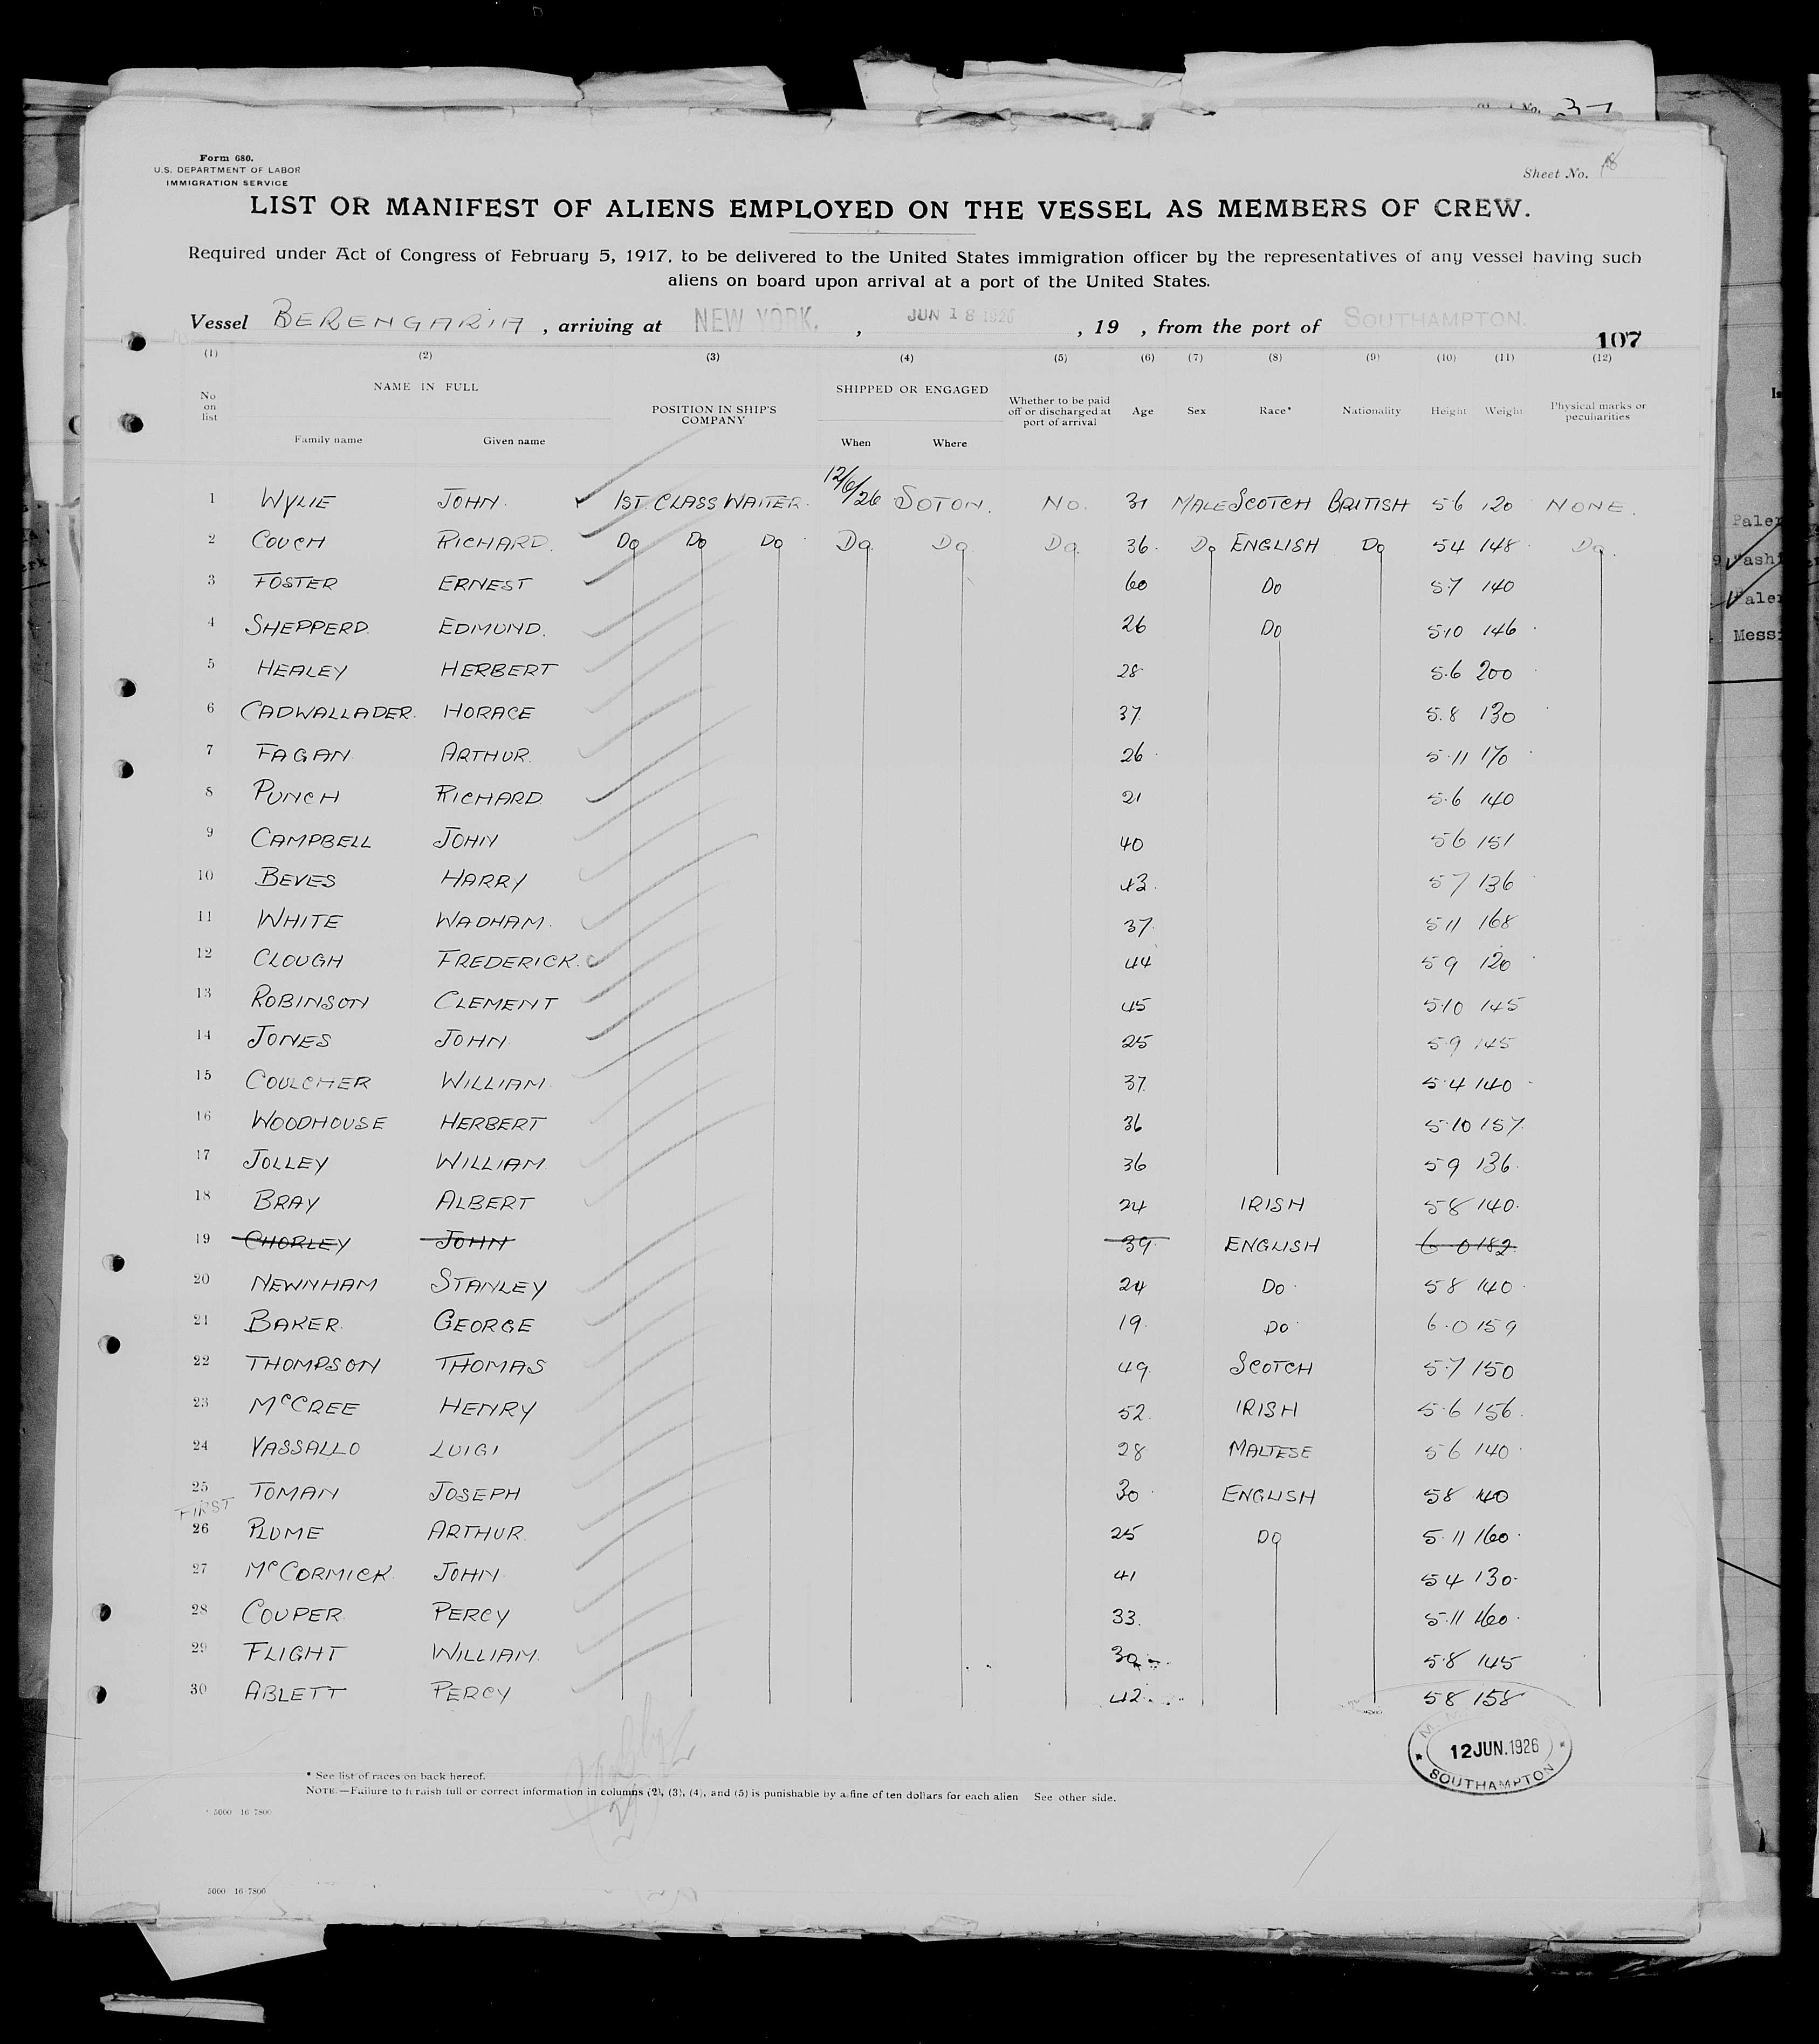 Form 680.
U.S. DEPARTMENT OF LABOR
IMMIGRATION SERVICE
Sheet No. 18
LIST OR MANIFEST OF ALIENS EMPLOYED ON THE VESSEL AS MEMBERS OF CREW.
Required under Act of Congress of February 5, 1917, to be delivered to the United States immigration officer by the representatives of any vessel having such
aliens on board upon arrival at a port of the United States.
Vessel BERENGARIA, arriving at NEW YORK, JUN 18 1926, 19 , from the port of SOUTHAMPTON.
107
(1) (2) (3) (4) (5) (6) (7) (8) (9) (10) (11) (12)
No on list NAME IN FULL POSITION IN SHIP'S COMPANY SHIPPED OR ENGAGED Whether to be paid off or discharged at port of arrival Age Sex Race* Nationality Height Weight Physical marks or peculiarities
Family name Given name When Where
1 WYLIE JOHN. 1ST. CLASS WAITER. 12/6/26 SOTON. NO. 31 MALE SCOTCH BRITISH 5 6 120 NONE.
2 COUCH RICHARD. DO DO DO DO DO DO 36 DO ENGLISH DO 5 4 148 DO.
3 FOSTER ERNEST 60 DO 5.7 140
4 SHEPPERD EDMUND. 26 DO 5.10 146
5 HEALEY HERBERT 28 5.6 200
6 CADWALLADER HORACE 37 5.8 130
7 FAGAN ARTHUR. 26 5.11 170
8 PUNCH RICHARD 21 5.6 140
9 CAMPBELL JOHN 40 5 6 151
10 BEVES HARRY 43 5 7 136
11 WHITE WADHAM. 37 5 11 168
12 CLOUGH FREDERICK. 44 5 9 120
13 ROBINSON CLEMENT 45 5.10 145
14 JONES JOHN 25 5.9 145
15 COULCHER WILLIAM 37 5.4 140
16 WOODHOUSE HERBERT 36 5.10 157
17 JOLLEY WILLIAM 36 5 9 136
18 BRAY ALBERT 24 IRISH 5 8 140
19 CHORLEY JOHN 39 ENGLISH 6 0 182
20 NEWNHAM STANLEY 24 DO 5 8 140
21 BAKER GEORGE 19 DO 6.0 159
22 THOMPSON THOMAS 49 SCOTCH 5.7 150
23 McCREE HENRY 52 IRISH 5.6 156
24 VASSALLO LUIGI 28 MALTESE 5 6 140
25 TOMAN JOSEPH 30 ENGLISH 5 8 140
FIRST
26 PLUME ARTHUR. 25 DO 5.11 160
27 McCORMICK JOHN 41 5 4 130
28 COUPER PERCY 33 5.11 160
29 FLIGHT WILLIAM 30 5.8 145
30 ABLETT PERCY 42 5 8 158
12 JUN. 1926
SOUTHAMPTON
* See list of races on back hereof.
NOTE.—Failure to furnish full or correct information in columns (2), (3), (4), and (5) is punishable by a fine of ten dollars for each alien See other side.
5000 16 7800
5000 16 7800